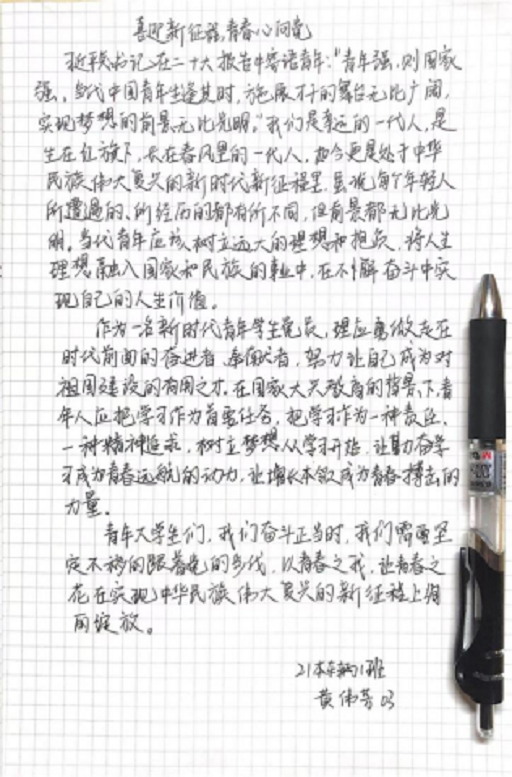 喜迎新征程,青春心向党
近平书记在二十大报告中寄语青年:"青年强,则国家
强。当代中国青年生逢其时,施展才干的舞台无比广阔,
实现梦想的前景无比光明。"我们是幸运的一代人,是
生在红旗下,长在春风里的一代人,如今更是处于中华
民族伟大复兴的新时代新征程里,虽说每个年轻人
所遭遇的、所经历的都有所不同,但前景都无比光
明。当代青年应该树立远大的理想和抱负,将人生
理想融入国家和民族的事业中,在不懈奋斗中实
现自己的人生价值。
作为一名新时代青年学生党员,理应勇做走在
时代前面的奋进者、奉献者,努力让自己成为对
祖国建设的有用之才。在国家大兴教育的背景下,青
年人应把学习作为首要任务,把学习作为一种责任、
一种精神追求,树立梦想从学习开始,让勤奋学
习成为青春远航的动力,让增长本领成为青春搏击的
力量。
青年大学生们,我们奋斗正当时,我们需要坚
定不移的跟着党的步伐,以青春之我,让青春之
花在实现中华民族伟大复兴的新征程上绚
丽绽放。
21本车辆1班
黄伟芳 03